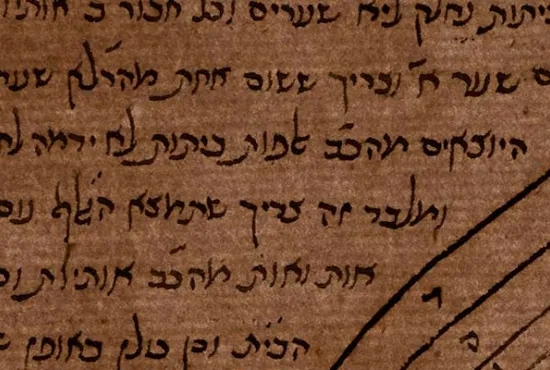 ביתות נחלק ליא שערים וכל חבור ב אותיו
ם שער א' וצריך ששום אחת מהרלא שער
היוצאים מהכב לפות ביתות לא ידמה לח
ומלבד זה צריך שתמצא הגלגל
אות ואות מהכב אותיות וכ
הבית וכן כולן באופן ש
ד
ב